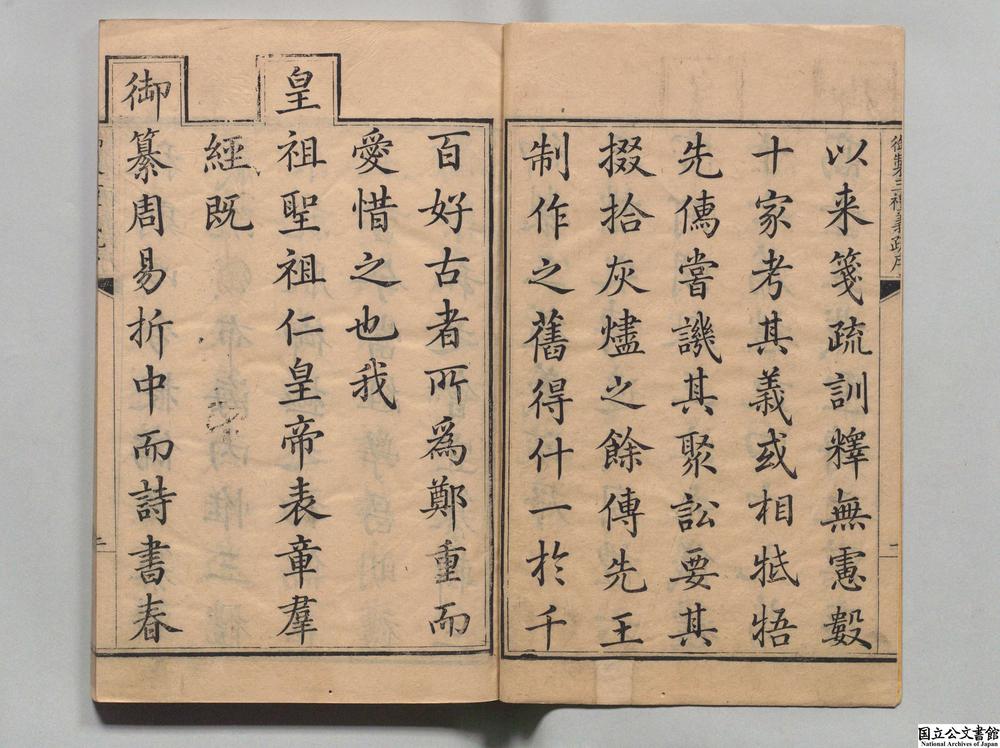 御製三禮義疏序
以来箋疏訓釋無慮數
十家考其義或相牴牾
先儒嘗譏其聚訟要其
掇拾灰燼之餘傳先王
制作之舊得什一於千
百好古者所為鄭重而
愛惜之也我
皇祖聖祖仁皇帝表章羣
經既
御纂周易折中而詩書春
国立公文書館
National Archives of Japan